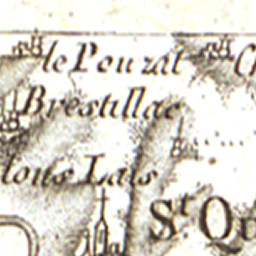 le Pouzat
Brestillac
tous Lais
St. Qu